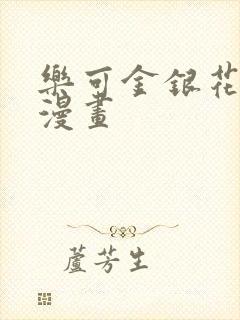 樂可金銀花
漫畫
蘆芳生